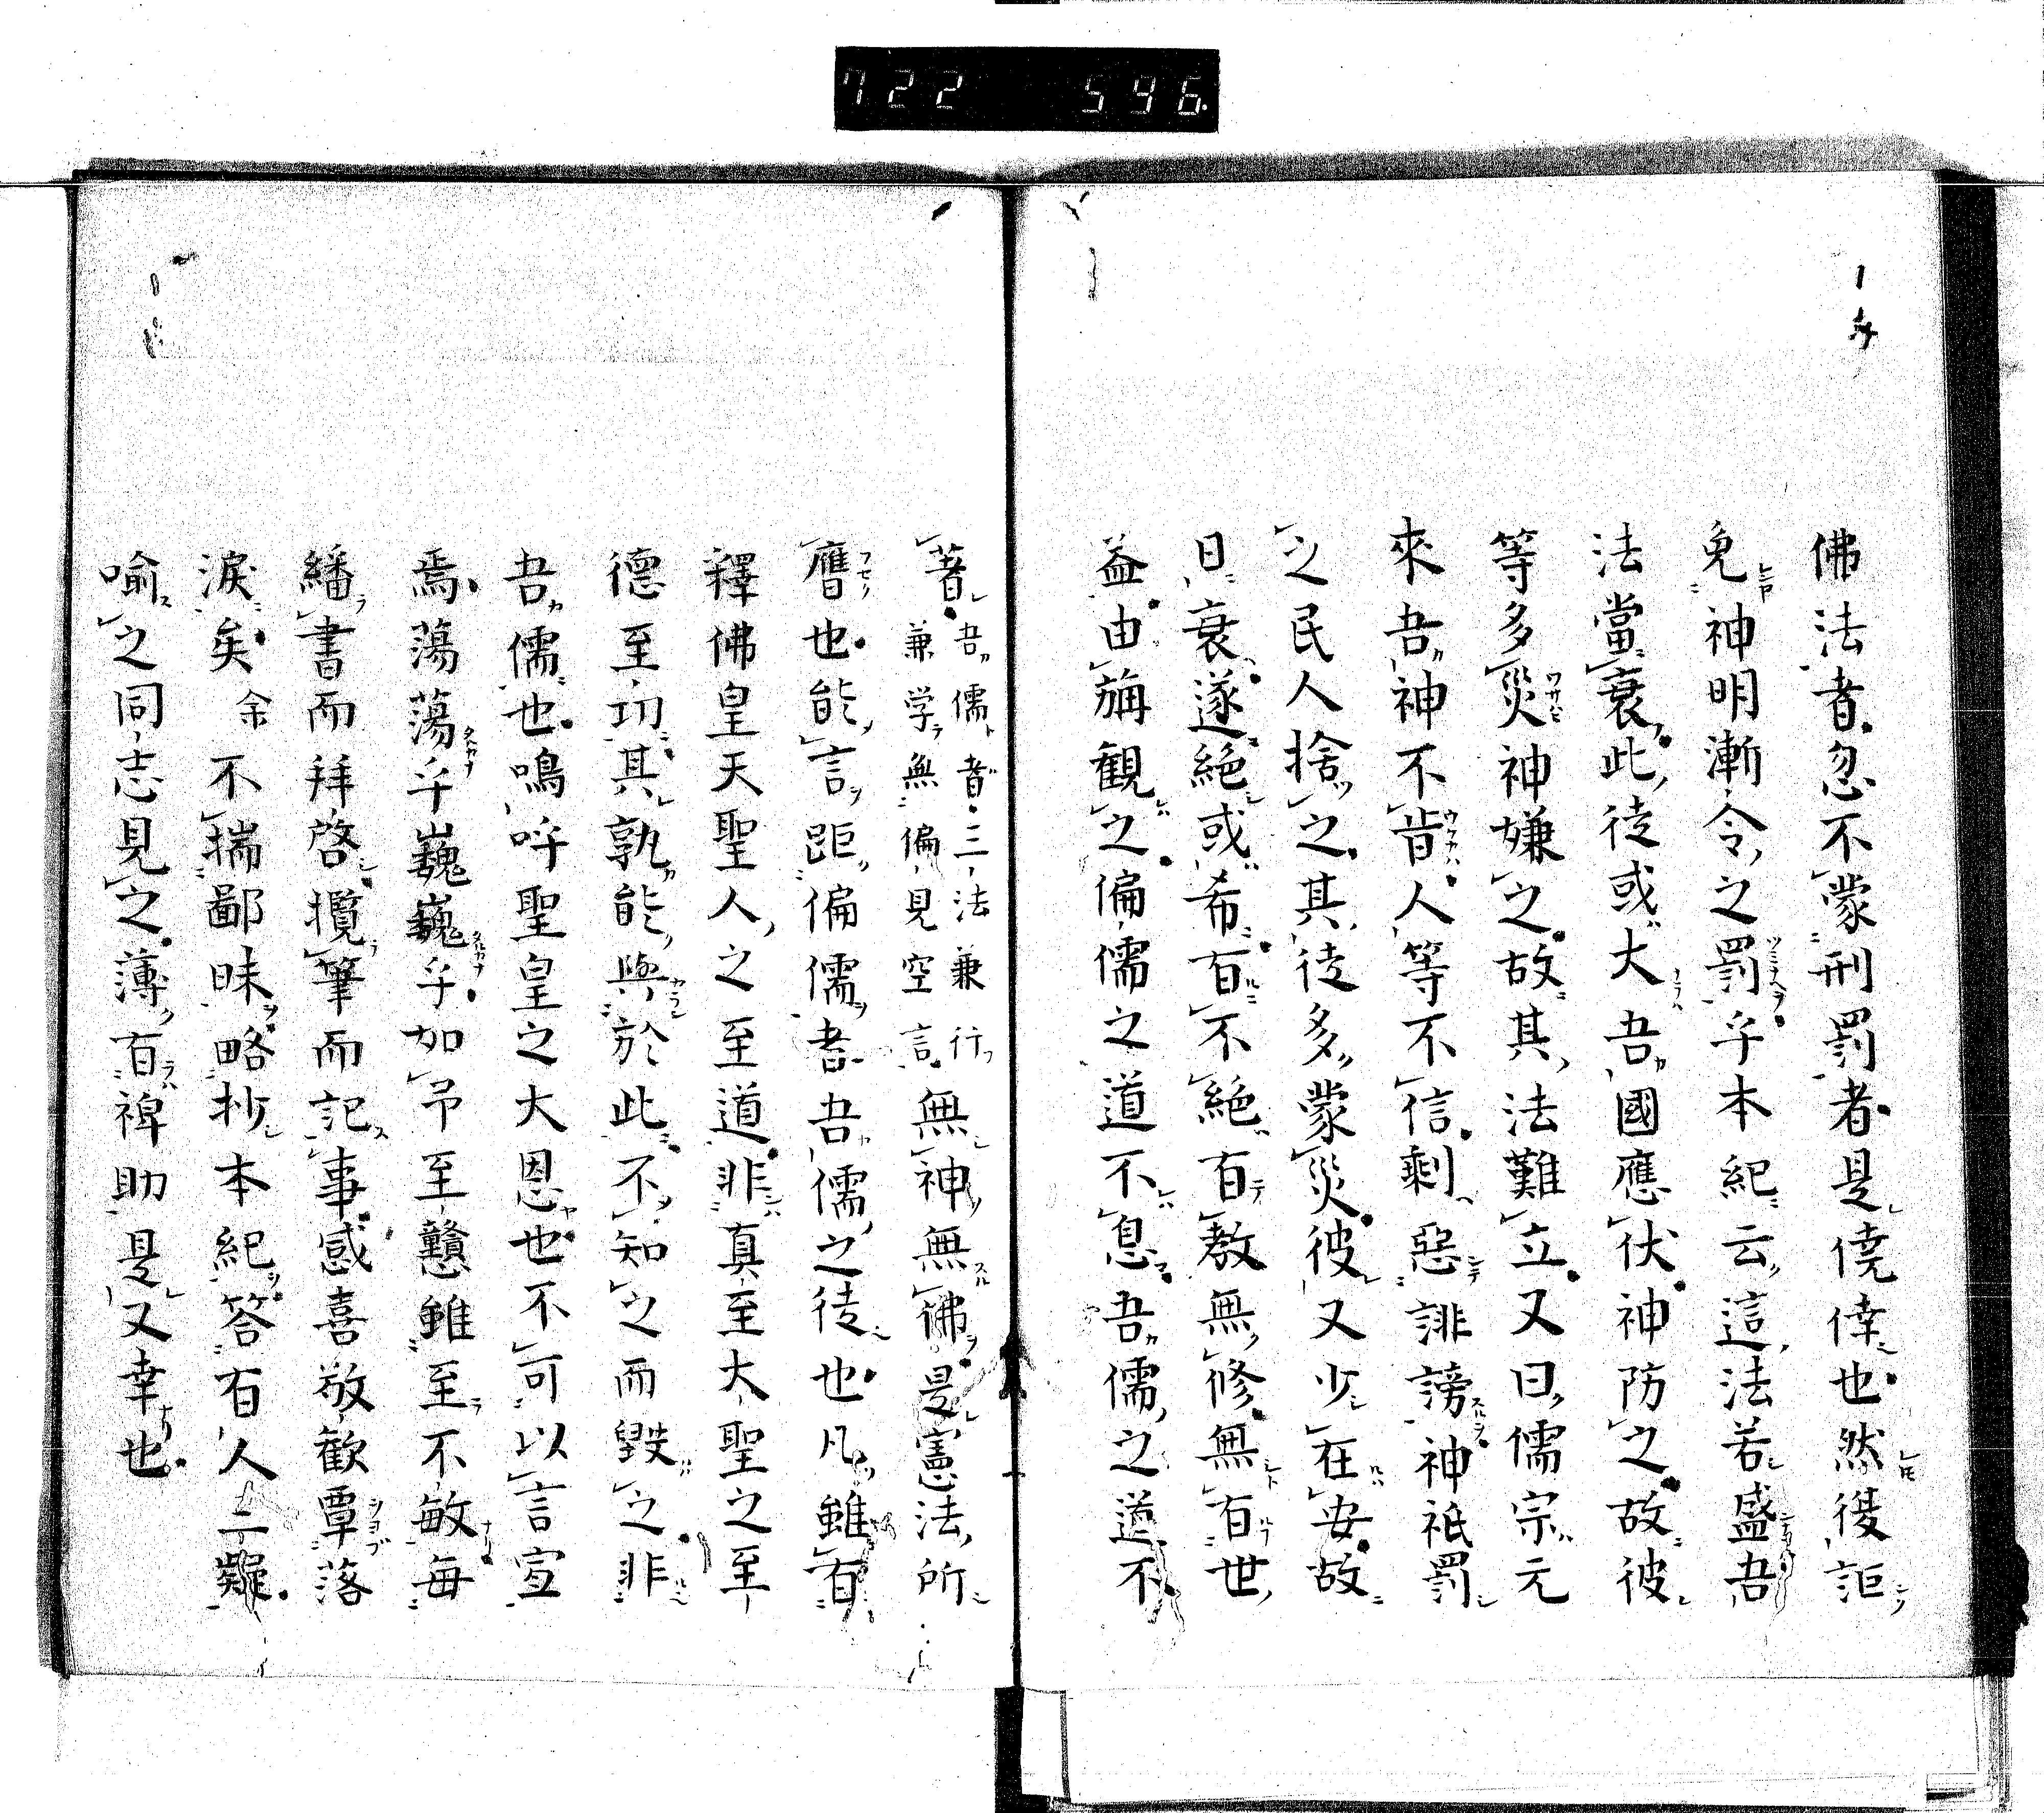 722 596.
佛法者忽不蒙刑罰者是僥倖也然後詎
免神明漸令之罰乎本紀云這法若盛吾
法當衰此徒或大吾國應伏神防之故彼
等多災神嫌之故其法難立又曰儒宗元
來吾神不肯人等不信剩惡誹謗神祇罰
之民人捨之其徒多蒙災彼又少在安故
日衰遂絕或希有不絕有教無修無有世
益由觀之偏儒之道不息吾儒之道不
著吾儒者三法兼行兼学無偏見空言無神無佛是憲法所
膺也能言距偏儒者吾儒之徒也凡雖有
釋佛皇天聖人之至道非真至大聖之至
德至功其孰能與於此不知之而毀之非
吾儒也鳴呼聖皇之大恩也不可以言宣
焉蕩蕩乎巍巍乎加予至戇雖至不敏每
繙書而拜啓攬筆而記事感喜敬歡覃落
淚矣余不揣鄙昧略抄本紀答有人二疑
喻之同志見之薄有裨助是又幸也